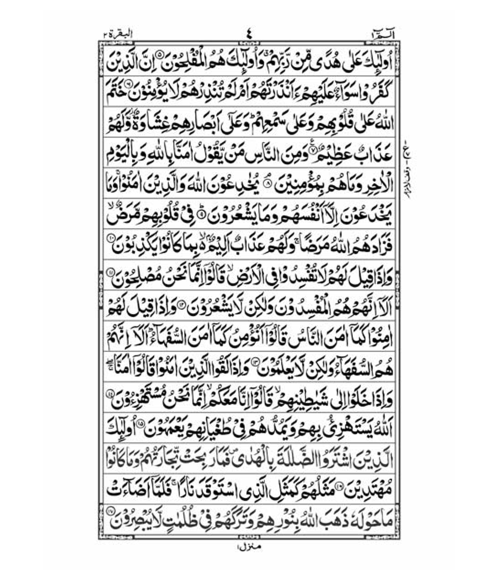 الٓمّٓ ١ ٤ البقرة ٢
اُولٰٓئِكَ عَلٰى هُدًى مِّنْ رَّبِّهِمْ وَاُولٰٓئِكَ هُمُ الْمُفْلِحُوْنَ ۝۵ اِنَّ الَّذِيْنَ
كَفَرُوْا سَوَآءٌ عَلَيْهِمْ ءَاَنْذَرْتَهُمْ اَمْ لَمْ تُنْذِرْهُمْ لَا يُؤْمِنُوْنَ ۝۶ خَتَمَ
اللّٰهُ عَلٰى قُلُوْبِهِمْ وَعَلٰى سَمْعِهِمْ وَعَلٰٓى اَبْصَارِهِمْ غِشَاوَةٌ وَّلَهُمْ
عَذَابٌ عَظِيْمٌ ۝۷ وَمِنَ النَّاسِ مَنْ يَّقُوْلُ اٰمَنَّا بِاللّٰهِ وَبِالْيَوْمِ
الْاٰخِرِ وَمَا هُمْ بِمُؤْمِنِيْنَ ۝۸ يُخٰدِعُوْنَ اللّٰهَ وَالَّذِيْنَ اٰمَنُوْا وَمَا
يَخْدَعُوْنَ اِلَّآ اَنْفُسَهُمْ وَمَا يَشْعُرُوْنَ ۝۹ فِيْ قُلُوْبِهِمْ مَّرَضٌ
فَزَادَهُمُ اللّٰهُ مَرَضًا وَلَهُمْ عَذَابٌ اَلِيْمٌ بِمَا كَانُوْا يَكْذِبُوْنَ ۝۱۰
وَاِذَا قِيْلَ لَهُمْ لَا تُفْسِدُوْا فِي الْاَرْضِ قَالُوْٓا اِنَّمَا نَحْنُ مُصْلِحُوْنَ ۝۱۱
اَلَآ اِنَّهُمْ هُمُ الْمُفْسِدُوْنَ وَلٰكِنْ لَّا يَشْعُرُوْنَ ۝۱۲ وَاِذَا قِيْلَ لَهُمْ
اٰمِنُوْا كَمَآ اٰمَنَ النَّاسُ قَالُوْٓا اَنُؤْمِنُ كَمَآ اٰمَنَ السُّفَهَآءُ اَلَآ اِنَّهُمْ
هُمُ السُّفَهَآءُ وَلٰكِنْ لَّا يَعْلَمُوْنَ ۝۱۳ وَاِذَا لَقُوا الَّذِيْنَ اٰمَنُوْا قَالُوْٓا اٰمَنَّا
وَاِذَا خَلَوْا اِلٰى شَيٰطِيْنِهِمْ قَالُوْٓا اِنَّا مَعَكُمْ اِنَّمَا نَحْنُ مُسْتَهْزِءُوْنَ ۝۱۴
اَللّٰهُ يَسْتَهْزِئُ بِهِمْ وَيَمُدُّهُمْ فِيْ طُغْيَانِهِمْ يَعْمَهُوْنَ ۝۱۵ اُولٰٓئِكَ
الَّذِيْنَ اشْتَرَوُا الضَّلٰلَةَ بِالْهُدٰى فَمَا رَبِحَتْ تِّجَارَتُهُمْ وَمَا كَانُوْا
مُهْتَدِيْنَ ۝۱۶ مَثَلُهُمْ كَمَثَلِ الَّذِي اسْتَوْقَدَ نَارًا فَلَمَّآ اَضَآءَتْ
مَا حَوْلَهٗ ذَهَبَ اللّٰهُ بِنُوْرِهِمْ وَتَرَكَهُمْ فِيْ ظُلُمٰتٍ لَّا يُبْصِرُوْنَ ۝۱۷
منزل ١